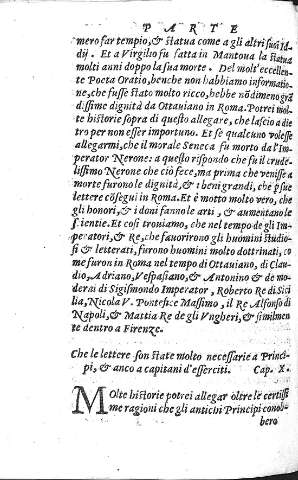 P A R T E
mero far tempio, & statua come a gli altri suoi Id-
dij. Et a Virgilio fu fatta in Mantoua la statua
molti anni doppo la sua morte. Del molt'eccellen-
te Poeta Oratio, benche non habbiamo informatio-
ne, che fusse stato molto ricco, hebbe nōdimeno grā
dissime dignità da Ottauiano in Roma. Potrei mol-
te historie sopra di questo allegare, che lascio a die
tro per non esser importuno. Et se qualcuno volesse
allegarmi, che il morale Seneca fu morto da l'Im-
perator Nerone: a questo rispondo che fu il crude-
lissimo Nerone che ciò fece, ma prima che venisse a
morte furono le dignità, & i beni grandi, che p sue
lettere cōseguì in Roma. Et è motto molto vero, che
gli honori, & i doni fanno le arti, & aumentano le
scientie. Et cosi trouiamo, che nel tempo de gli Im-
peratori, & Re, che fauorirono gli huomini studio-
si & letterati, furono huomini molto dottrinati, co
me furon in Roma nel tempo di Ottauiano, di Clau-
dio, Adriano, Vespasiano, & Antonino & de mo-
derni di Sigismondo Imperator, Roberto Re di Sici
lia, Nicola V. Pontefice Massimo, il Re Alfonso di
Napoli, & Mattia Re de gli Vngheri, & similmen
te dentro a Firenze.
Che le lettere son state molto necessarie a Princi-
pi, & anco a capitani d'esserciti. Cap. X.
Molte historie potrei allegar oltre le certissi
me ragioni che gli antichi Principi conob-
bero